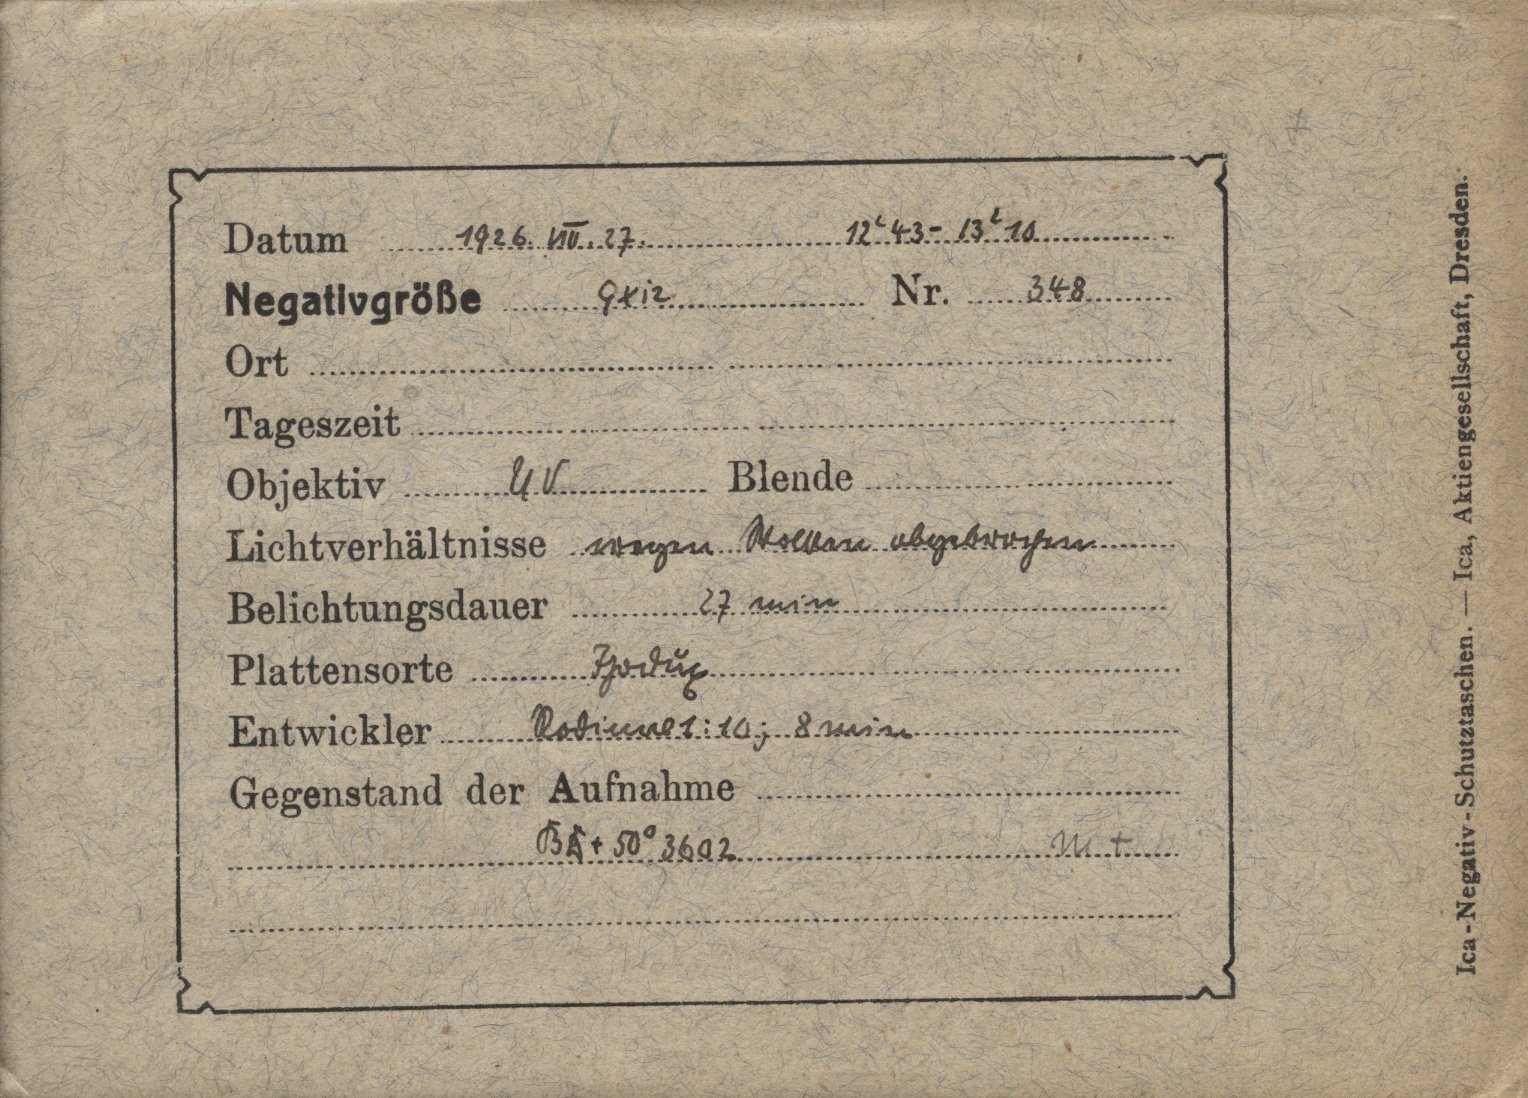 Datum 1926. VII. 27. 12h 43 - 13h 10
Negativgröße 9x12 Nr. 348
Ort
Tageszeit
Objektiv UV Blende
Lichtverhältnisse wegen Wolken abgebrochen
Belichtungsdauer 27 min
Plattensorte
Entwickler Rodinal 1:10; 8 min
Gegenstand der Aufnahme
+ 50° 3602 m +
Ica-Negativ-Schutztaschen. — Ica, Aktiengesellschaft, Dresden.